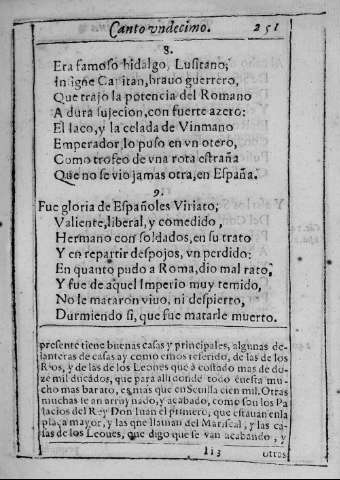 Canto vndecimo. 251
8.
Era famoso hidalgo, Lusitano,
Insigne Capitan, brauo guerrero,
Que trajo la potencia del Romano
A dura sujecion, con fuerte azero:
El saco, y la celada de Vinmano
Emperador, lo puso en vn otero,
Como trofeo de vna rota estraña
Que no se vio jamas otra, en España.
9.
Fue gloria de Españoles Viriato;
Valiente, liberal, y comedido,
Hermano con soldados, en su trato
Y en repartir despojos, vn perdido:
En quanto pudo a Roma, dio mal rato,
Y fue de aquel Imperio muy temido,
No le mataron viuo, ni despierto,
Durmiendo si, que fue matarle muerto.
presente tiene buenas casas y principales, algunas de-
lanteras de casas ay como emos referido, de las de los
Rios, y de las de los Leones que à costado mas de do-
ze mil ducados, que para alli donde todo cuesta mu-
cho mas barato, es mas que en Seuilla cien mil. Otras
muchas se an arruynado, y acabado, como son los Pa
lacios del Rey Don Iuan el primero, que estauan en la
plaça mayor, y las que llaman del Mariscal, y las ca-
sas de los Leones, que digo que se van acabando, y
Ii3 otras